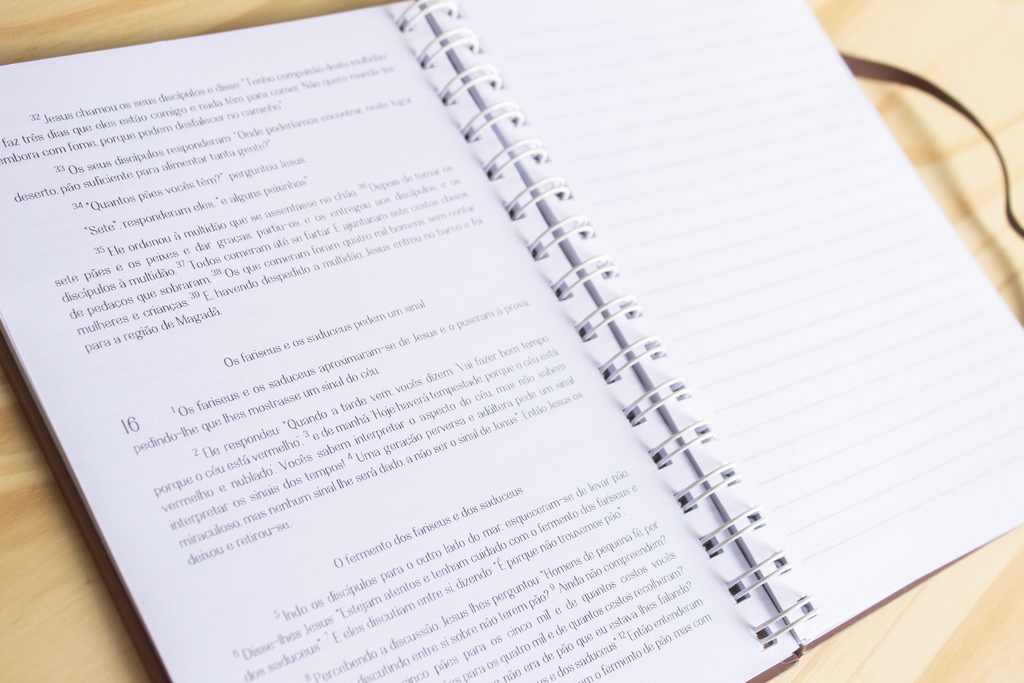 32 Jesus chamou os seus discípulos e disse: "Tenho compaixão desta multidão
faz três dias que eles estão comigo e nada têm para comer. Não quero mandá-los
embora com fome, porque podem desfalecer no caminho"
33 Os seus discípulos responderam: "Onde poderíamos encontrar, neste lugar
deserto, pão suficiente para alimentar tanta gente?"
34 "Quantos pães vocês têm?", perguntou Jesus.
"Sete", responderam eles, "e alguns peixinhos".
35 Ele ordenou à multidão que se assentasse no chão. 36 Depois de tomar os
sete pães e os peixes e dar graças, partiu-os e os entregou aos discípulos, e os
discípulos à multidão. 37 Todos comeram até se fartar. E ajuntaram sete cestos cheios
de pedaços que sobraram. 38 Os que comeram foram quatro mil homens, sem contar
mulheres e crianças. 39 E, havendo despedido a multidão, Jesus entrou no barco e foi
para a região de Magadã.
Os fariseus e os saduceus pedem um sinal
16 1 Os fariseus e os saduceus aproximaram-se de Jesus e o puseram à prova,
pedindo-lhe que lhes mostrasse um sinal do céu.
2 Ele respondeu: "Quando a tarde vem, vocês dizem: 'Vai fazer bom tempo
porque o céu está vermelho', 3 e de manhã: 'Hoje haverá tempestade, porque o céu está
vermelho e nublado'. Vocês sabem interpretar o aspecto do céu, mas não sabem
interpretar os sinais dos tempos! 4 Uma geração perversa e adúltera pede um sinal
miraculoso, mas nenhum sinal lhe será dado, a não ser o sinal de Jonas". Então Jesus os
deixou e retirou-se.
O fermento dos fariseus e dos saduceus
5 Indo os discípulos para o outro lado do mar, esqueceram-se de levar pão.
6 Disse-lhes Jesus: "Estejam atentos e tenham cuidado com o fermento dos fariseus e
dos saduceus". 7 E eles discutiam entre si, dizendo: "É porque não trouxemos pão".
8 Percebendo a discussão, Jesus lhes perguntou: "Homens de pequena fé, por
discutindo entre si sobre não terem pão? 9 Ainda não compreendem?
cinco pães para os cinco mil e de quantos cestos vocês
pães para os quatro mil e de quantos cestos recolheram?
não era de pão que eu estava lhes falando?
us e dos saduceus". 12 Então entenderam
om o fermento de pão, mas com